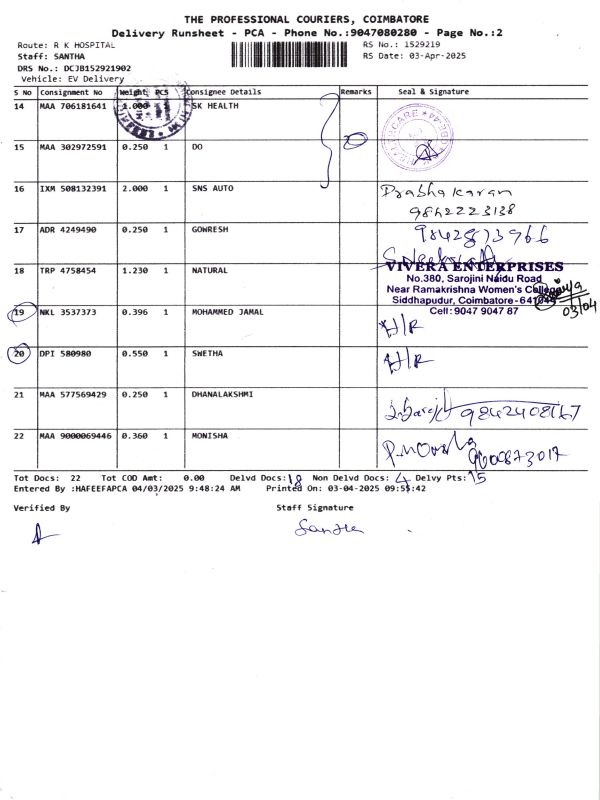 THE PROFESSIONAL COURIERS, COIMBATORE
Delivery Runsheet - PCA - Phone No.:9047080280 - Page No.:2
Route: R K HOSPITAL
RS No.: 1529219
Staff: SANTHA
RS Date: 03-Apr-2025
DRS No.: DCJB152921902
Vehicle: EV Delivery
S No Consignment No Weight PCS Consignee Details Remarks Seal & Signature
14 MAA 706181641 1.000 1 SK HEALTH
15 MAA 302972591 0.250 1 DO
16 IXM 508132391 2.000 1 SNS AUTO Prabhakaran
9842223138
17 ADR 4249490 0.250 1 GOWRESH 9842873966
18 TRP 4758454 1.230 1 NATURAL
VIVERA ENTERPRISES
No.380, Sarojini Naidu Road
Near Ramakrishna Women's College
Siddhapudur, Coimbatore - 641044
Cell: 9047 9047 87
03/04
19 NKL 3537373 0.396 1 MOHAMMED JAMAL H/R
20 DPI 580980 0.550 1 SWETHA H/R
21 MAA 577569429 0.250 1 DHANALAKSHMI 9842408167
22 MAA 9000069446 0.360 1 MONISHA P.Monisha
9600873017
Tot Docs: 22 Tot COD Amt: 0.00 Delvd Docs: 18 Non Delvd Docs: 4 Delvy Pts: 15
Entered By :HAFEEFAPCA 04/03/2025 9:48:24 AM Printed On: 03-04-2025 09:55:42
Verified By Staff Signature
Santha